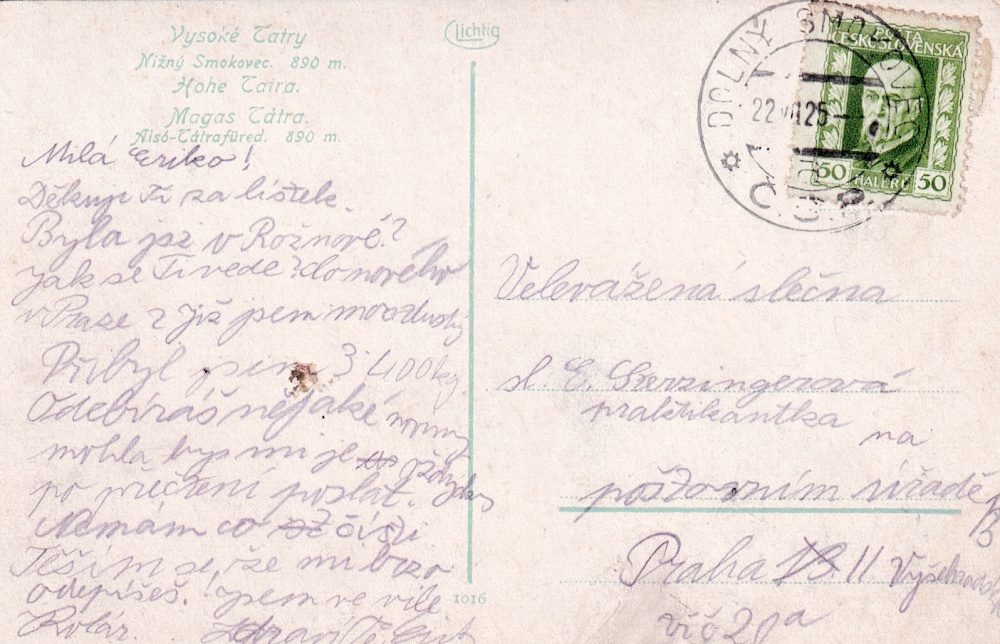 Vysoké Tatry
Nižný Smokovec. 890 m.
Hohe Tatra.
Magas Tátra.
Alsó-Tátrafüred. 890 m.
Lichtig
DOLNÝ SMOKOVEC
22 VII 25
POŠTA
ČESKOSLOVENSKÁ
50 HALÉŘŮ 50
Milá Eriko!
Děkuji Ti za lístek.
Byla jsi v Rožnově?
Jak se Ti vede? co nového
v Praze? Již jsem
Přibyl jsem 3·400 kg.
Odebíráš nějaké
mohla bys mi je
po přečtení poslat.
Nemám co číst
Těším se, že mi brzo
odepíšeš. jsem ve vile
Zdraví Tě
Velevážená slečna
sl. E.
praktikantka
na
poštovním úřadě
Praha 11
1016